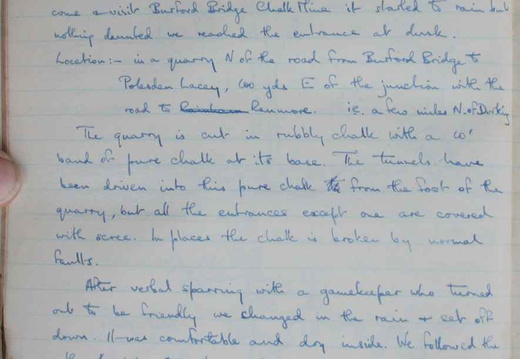 come & visit Burford Bridge Chalk Mine it started to rain but
nothing daunted we reached the entrance at dusk.
Location:- in a quarry N of the road from Burford Bridge to
Polesden Lacey, 600 yds E of the junction with the
road to Ranmore. ie. a few miles N. of Dorking
The quarry is cut in rubbly chalk with a 60'
band of pure chalk at its base. The tunnels have
been driven into this pure chalk from the foot of the
quarry, but all the entrances except one are covered
with scree. In places the chalk is broken by normal
faults.
After verbal sparring with a gamekeeper who turned
out to be friendly we changed in the rain & set off
down. It was comfortable and dry inside. We followed the